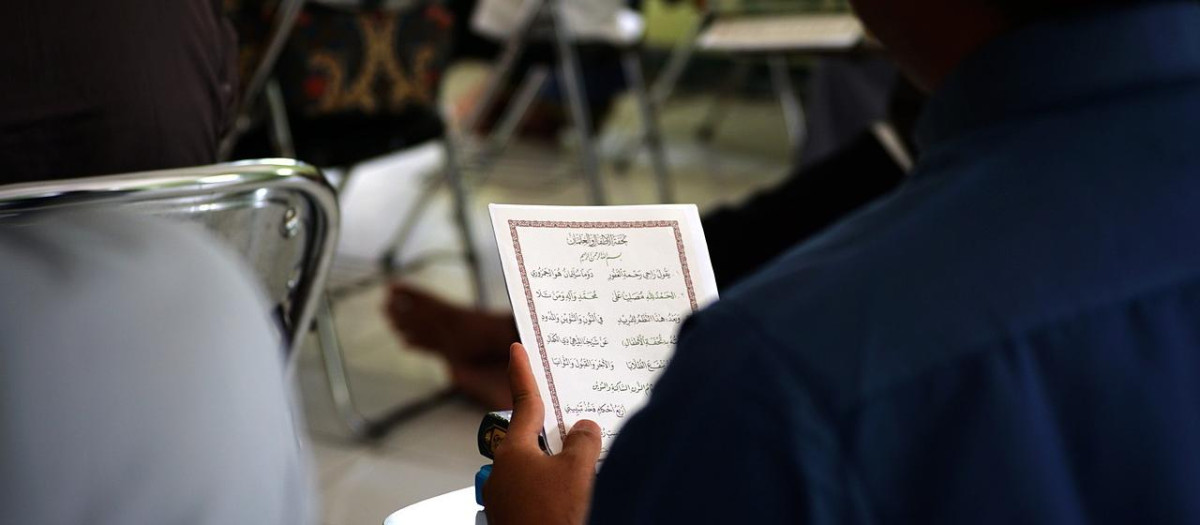 تحفة الأطفال والغلمان
بسم الله الرحمن الرحيم
يَقُولُ رَاجِي رَحْمَةِ الْغَفُورِ دَوْمًا سُلَيْمَانُ هُوَ الْجَمْزُورِي
الْحَمْدُ لِلَّهِ مُصَلِّيًا عَلَى مُحَمَّدٍ وَآلِهِ وَمَنْ تَلَا
وَبَعْدُ: هٰذَا النَّظْمُ لِلْمُرِيدِ فِي النُّونِ وَالتَّنْوِينِ وَالْمُدُودِ
بِتُحْفَةِ الْأَطْفَالِ عَنْ شَيْخِنَا الْمِيهِيِّ ذِي الْكَمَالِ
الطُّلَّابَا وَالْأَجْرَ وَالْقَبُولَ وَالثَّوَابَا
النُّونِ السَّاكِنَةِ وَالتَّنْوِينِ
أَرْبَعُ أَحْكَامٍ فَخُذْ تَبْيِينِي